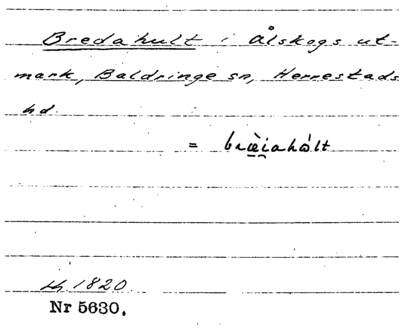 Bredahult i Ålskogs ut-
mark, Baldringe sn, Herrestads
hd.
= bræ̀i̯ahòlt
1820
Nr 5630.